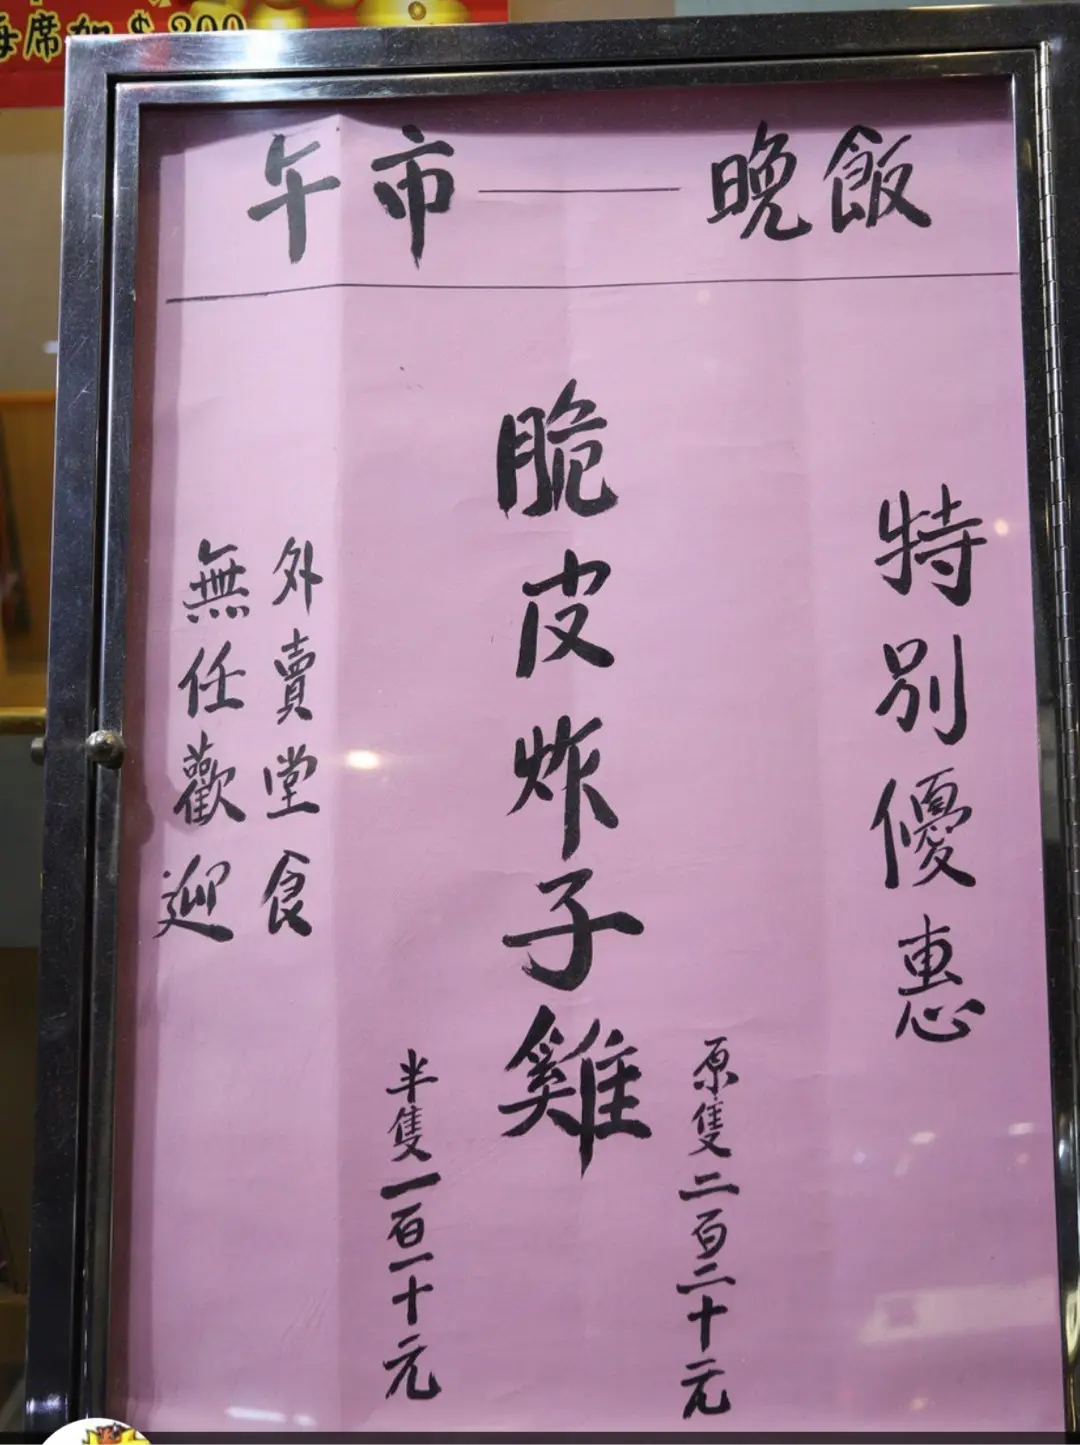 每席加$200
午市——晚飯
特別優惠
脆皮炸子雞
原隻二百二十元
半隻一百一十元
外賣堂食
無任歡迎